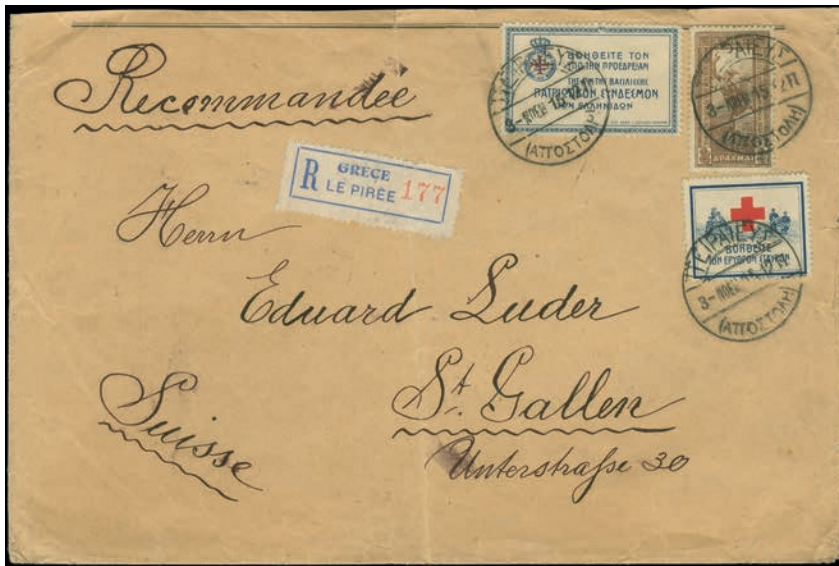 Recommandée
ΒΟΗΘΕΙΤΕ ΤΟΝ
ΥΠΟ ΤΗΝ ΠΡΟΕΔΡΕΙΑΝ
ΤΗΣ ΒΑΣΙΛΙΣΣΗΣ
ΠΑΤΡΙΩΤΙΚΟΝ ΣΥΝΔΕΣΜΟΝ
ΤΩΝ ΕΛΛΗΝΙΔΩΝ
ΠΕΙΡΑΙΕΥΣ
3-ΝΟΕΜ 15
(ΑΠΟΣΤΟΛΗ)
ΠΕΙΡΑΙΕΥΣ
3-ΝΟΕΜ 15 12Π
(ΑΠΟΣΤΟΛΗ)
ΔΡΑΧΜΑΙ
R GRÈCE
LE PIRÉE 177
ΒΟΗΘΕΙΤΕ
ΤΟΝ ΕΡΥΘΡΟΝ ΣΤΑΥΡΟΝ
ΠΕΙΡΑΙΕΥΣ
3-ΝΟΕΜ 15 12Π
(ΑΠΟΣΤΟΛΗ)
Herrn
Eduard Luder
St. Gallen
Unterstraße 30
Suisse